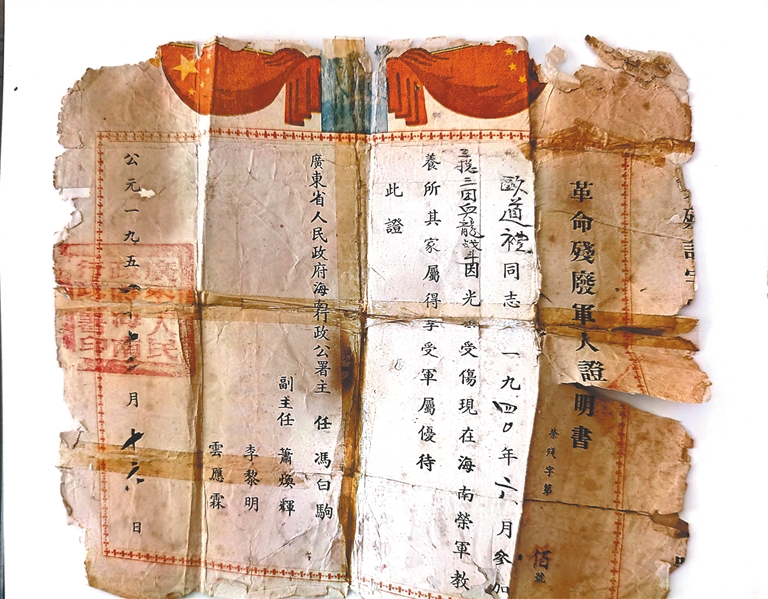 革命殘廢軍人證明書
榮殘字第
佰號
歐道禮同志 一九四〇年六月參加
战斗因光受傷現在海南榮軍教
養所其家屬得享受軍屬優待
此證
廣東省人民政府海南行政公署主任 馮白駒
副主任 蕭煥輝
李黎明
雲應霖
公元一九五 月十六日